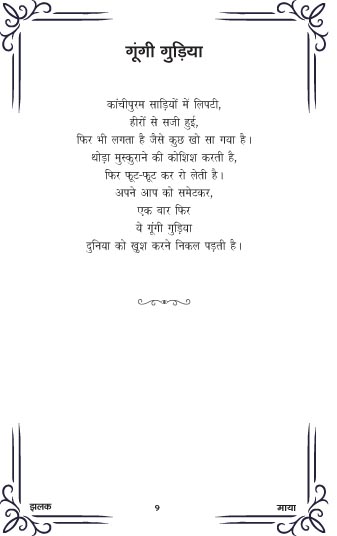 गूंगी गुड़िया
कांचीपुरम साड़ियों में लिपटी,
हीरों से सजी हुई,
फिर भी लगता है जैसे कुछ खो सा गया है।
थोड़ा मुस्कुराने की कोशिश करती है,
फिर फूट-फूट कर रो लेती है।
अपने आप को समेटकर,
एक बार फिर
ये गूंगी गुड़िया
दुनिया को खुश करने निकल पड़ती है।
झलक 9 माया